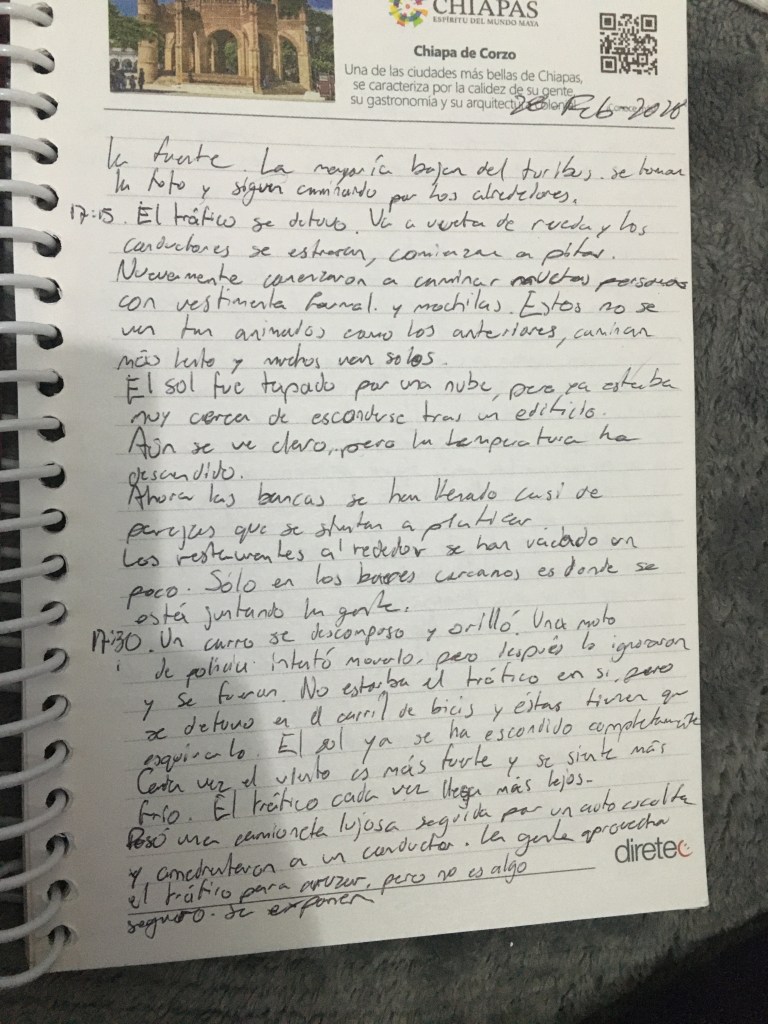 CHIAPAS
ESPÍRITU DEL MUNDO MAYA
Chiapa de Corzo
Una de las ciudades más bellas de Chiapas,
se caracteriza por la calidez de su gente,
su gastronomía y su arquitectura colonial.
Feb
la fuente La mayoría bajan del turibus. se toman
la foto y siguen caminando por los alrededores.
17:15. El tráfico se detuvo. Va a vuelta de rueda y los
conductores se estresan, comienzan a pitar.
Nuevamente comenzaron a caminar muchas personas
con vestimenta formal. y mochilas. Estos no se
ven tan animados como los anteriores, caminan
más lento y muchos van solos.
El sol fue tapado por una nube, pero ya estaba
muy cerca de esconderse tras un edificio.
Aún se ve claro, pero la temperatura ha
descendido.
Ahora las bancas se han llenado casi de
parejas que se sientan a platicar
Los restaurantes al rededor se han vaciado un
poco. Sólo en los bares cercanos es donde se
está juntando la gente.
17:30. Un carro se descompuso y orilló. Una moto
de policía intentó moverlo, pero después lo ignoraron
y se fueron. No estorba el tráfico en si, pero
se detuvo en el carril de bicis y éstas tienen que
esquivarlo. El sol ya se ha escondido completamente
Cada vez el viento es más fuerte y se siente más
frío. El tráfico cada vez llega más lejos.
Pasó una camioneta lujosa seguida por un auto escolta
y amedrentaron a un conductor. La gente aprovecha
el tráfico para cruzar, pero no es algo
seguro. se exponen
diretec